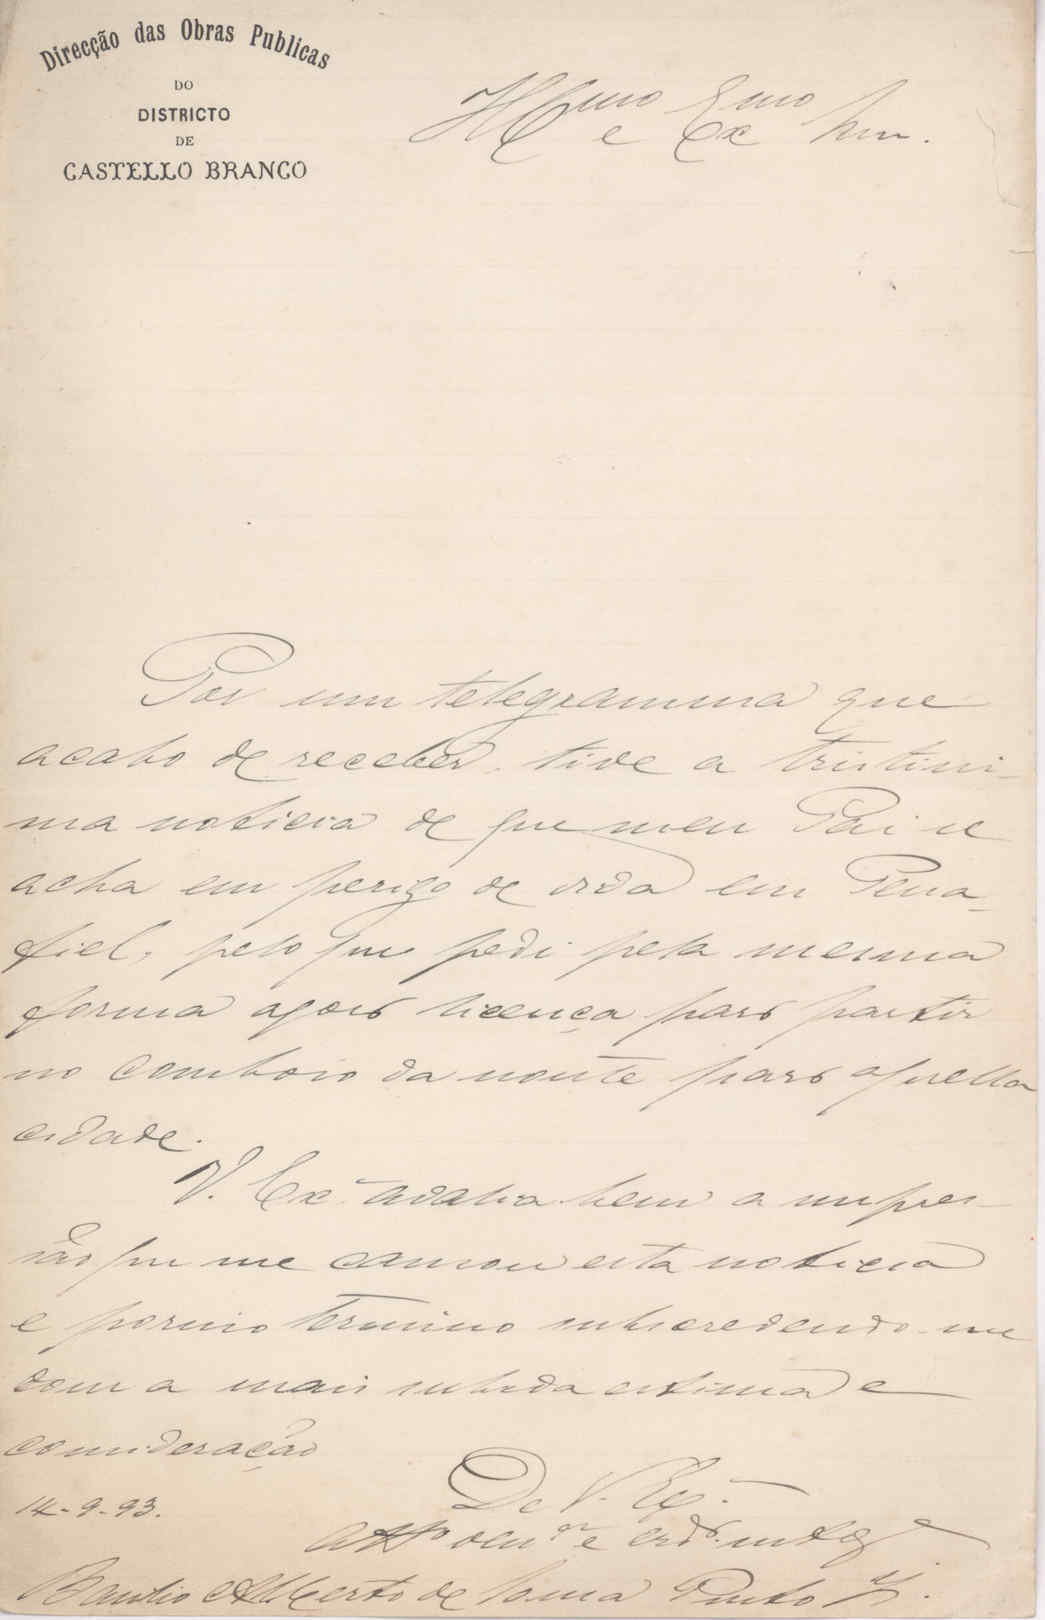 Direcção das Obras Publicas
DO
DISTRICTO
DE
CASTELLO BRANCO
Illmo e Exmo Snr.
Por um telegramma que
acabo de receber tive a tristissi-
ma noticia de que meu Pai se
acha em perigo de vida em Pena-
fiel, pelo que pedi pela mesma
forma agora licença para partir
no comboio da noute para aquella
cidade.
V. Exa avalia bem a impres-
são que me causou esta noticia
e por isso termino subscrevendo-me
com a mais subida estima e
consideração
De V. Exa
14-9-93.
Atto venor e crdo mto obgo
Basilio Alberto de Sousa Pinto